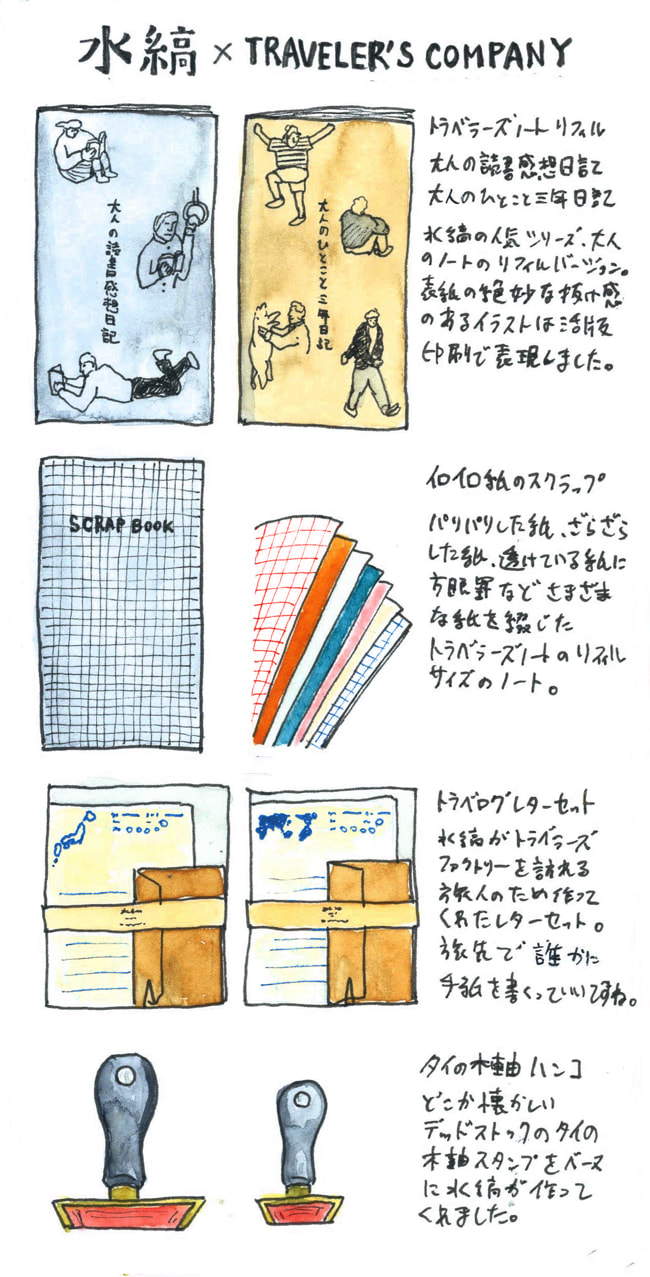 水縞 × TRAVELER'S COMPANY
大人の読書感想日記
大人のひとこと三年日記
トラベラーズノート リフィル
大人の読書感想日記
大人のひとこと三年日記
水縞の人気シリーズ、大人
のノートのリフィルバージョン。
表紙の絶妙な抜け感
のあるイラストは活版
印刷で表現しました。
SCRAP BOOK
イロイロ紙のスクラップ
パリパリした紙、ざらざら
した紙、透けている紙に
方眼罫などさまざま
な紙を綴じた
トラベラーズノートのリフィル
サイズのノート。
トラベログレターセット
水縞がトラベラーズ
ファクトリーを訪れる
旅人のため作って
くれたレターセット。
旅先で誰かに
手紙を書くっていいですね。
タイの木軸ハンコ
どこか懐かしい
デッドストックのタイの
木軸スタンプをベース
に水縞が作って
くれました。